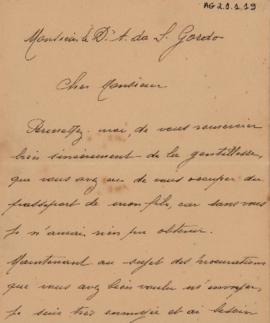 AG 2.0.1.19
Monsieur le D. A. da S. Gordo
Cher Monsieur
Permettez-moi, de vous remercier
bien sincèrement de la gentillesse
que vous avez eu de vous occuper du
passeport de mon fils, car sans vous
je n'aurais rien pu obtenir.
Maintenant au sujet des procurations
que vous avez bien voulu m'envoyer,
je suis très ennuyée et ai besoin